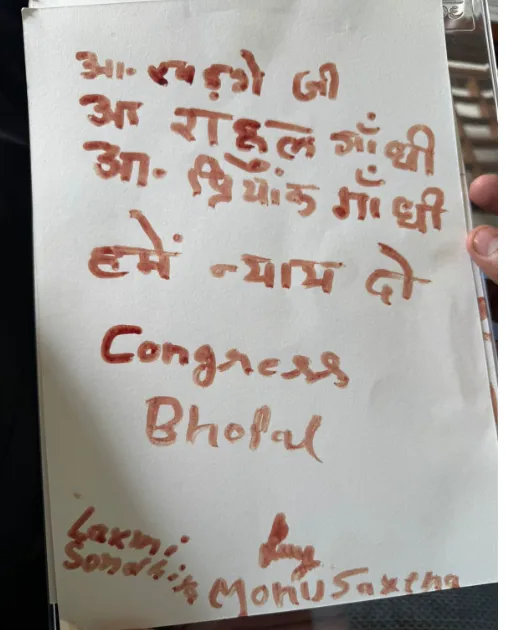 आ. खड़गे जी
आ राहुल गाँधी
आ. प्रियांक गाँधी
हमें न्याय दो
Congress
Bhopal
Laxmi
Sondhiya
Monu Saxena